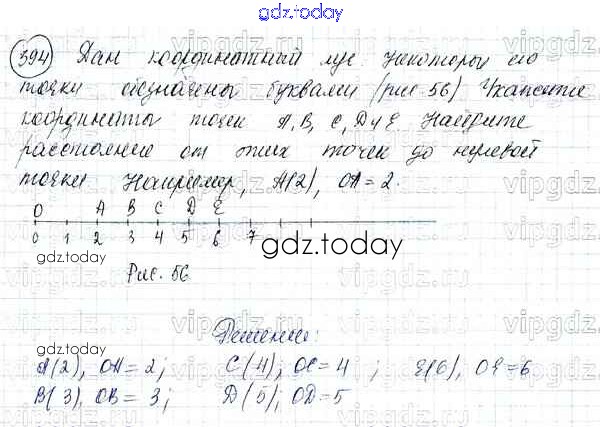 gdz.today
394 Дан координатный луч некоторые его
точки обозначены буквами (рис 56) Укажите
координаты точек A, B, C, D и E Найдите
расстояние от этих точек до нулевой
точки Например, A(2), OA = 2.
O A B C D E
0 1 2 3 4 5 6 7
gdz.today
gdz.today
Рис. 56
Решение:
gdz.today
A(2), OA = 2; C(4); OC = 4; E(6), OE = 6
B(3), OB = 3; D(5); OD = 5